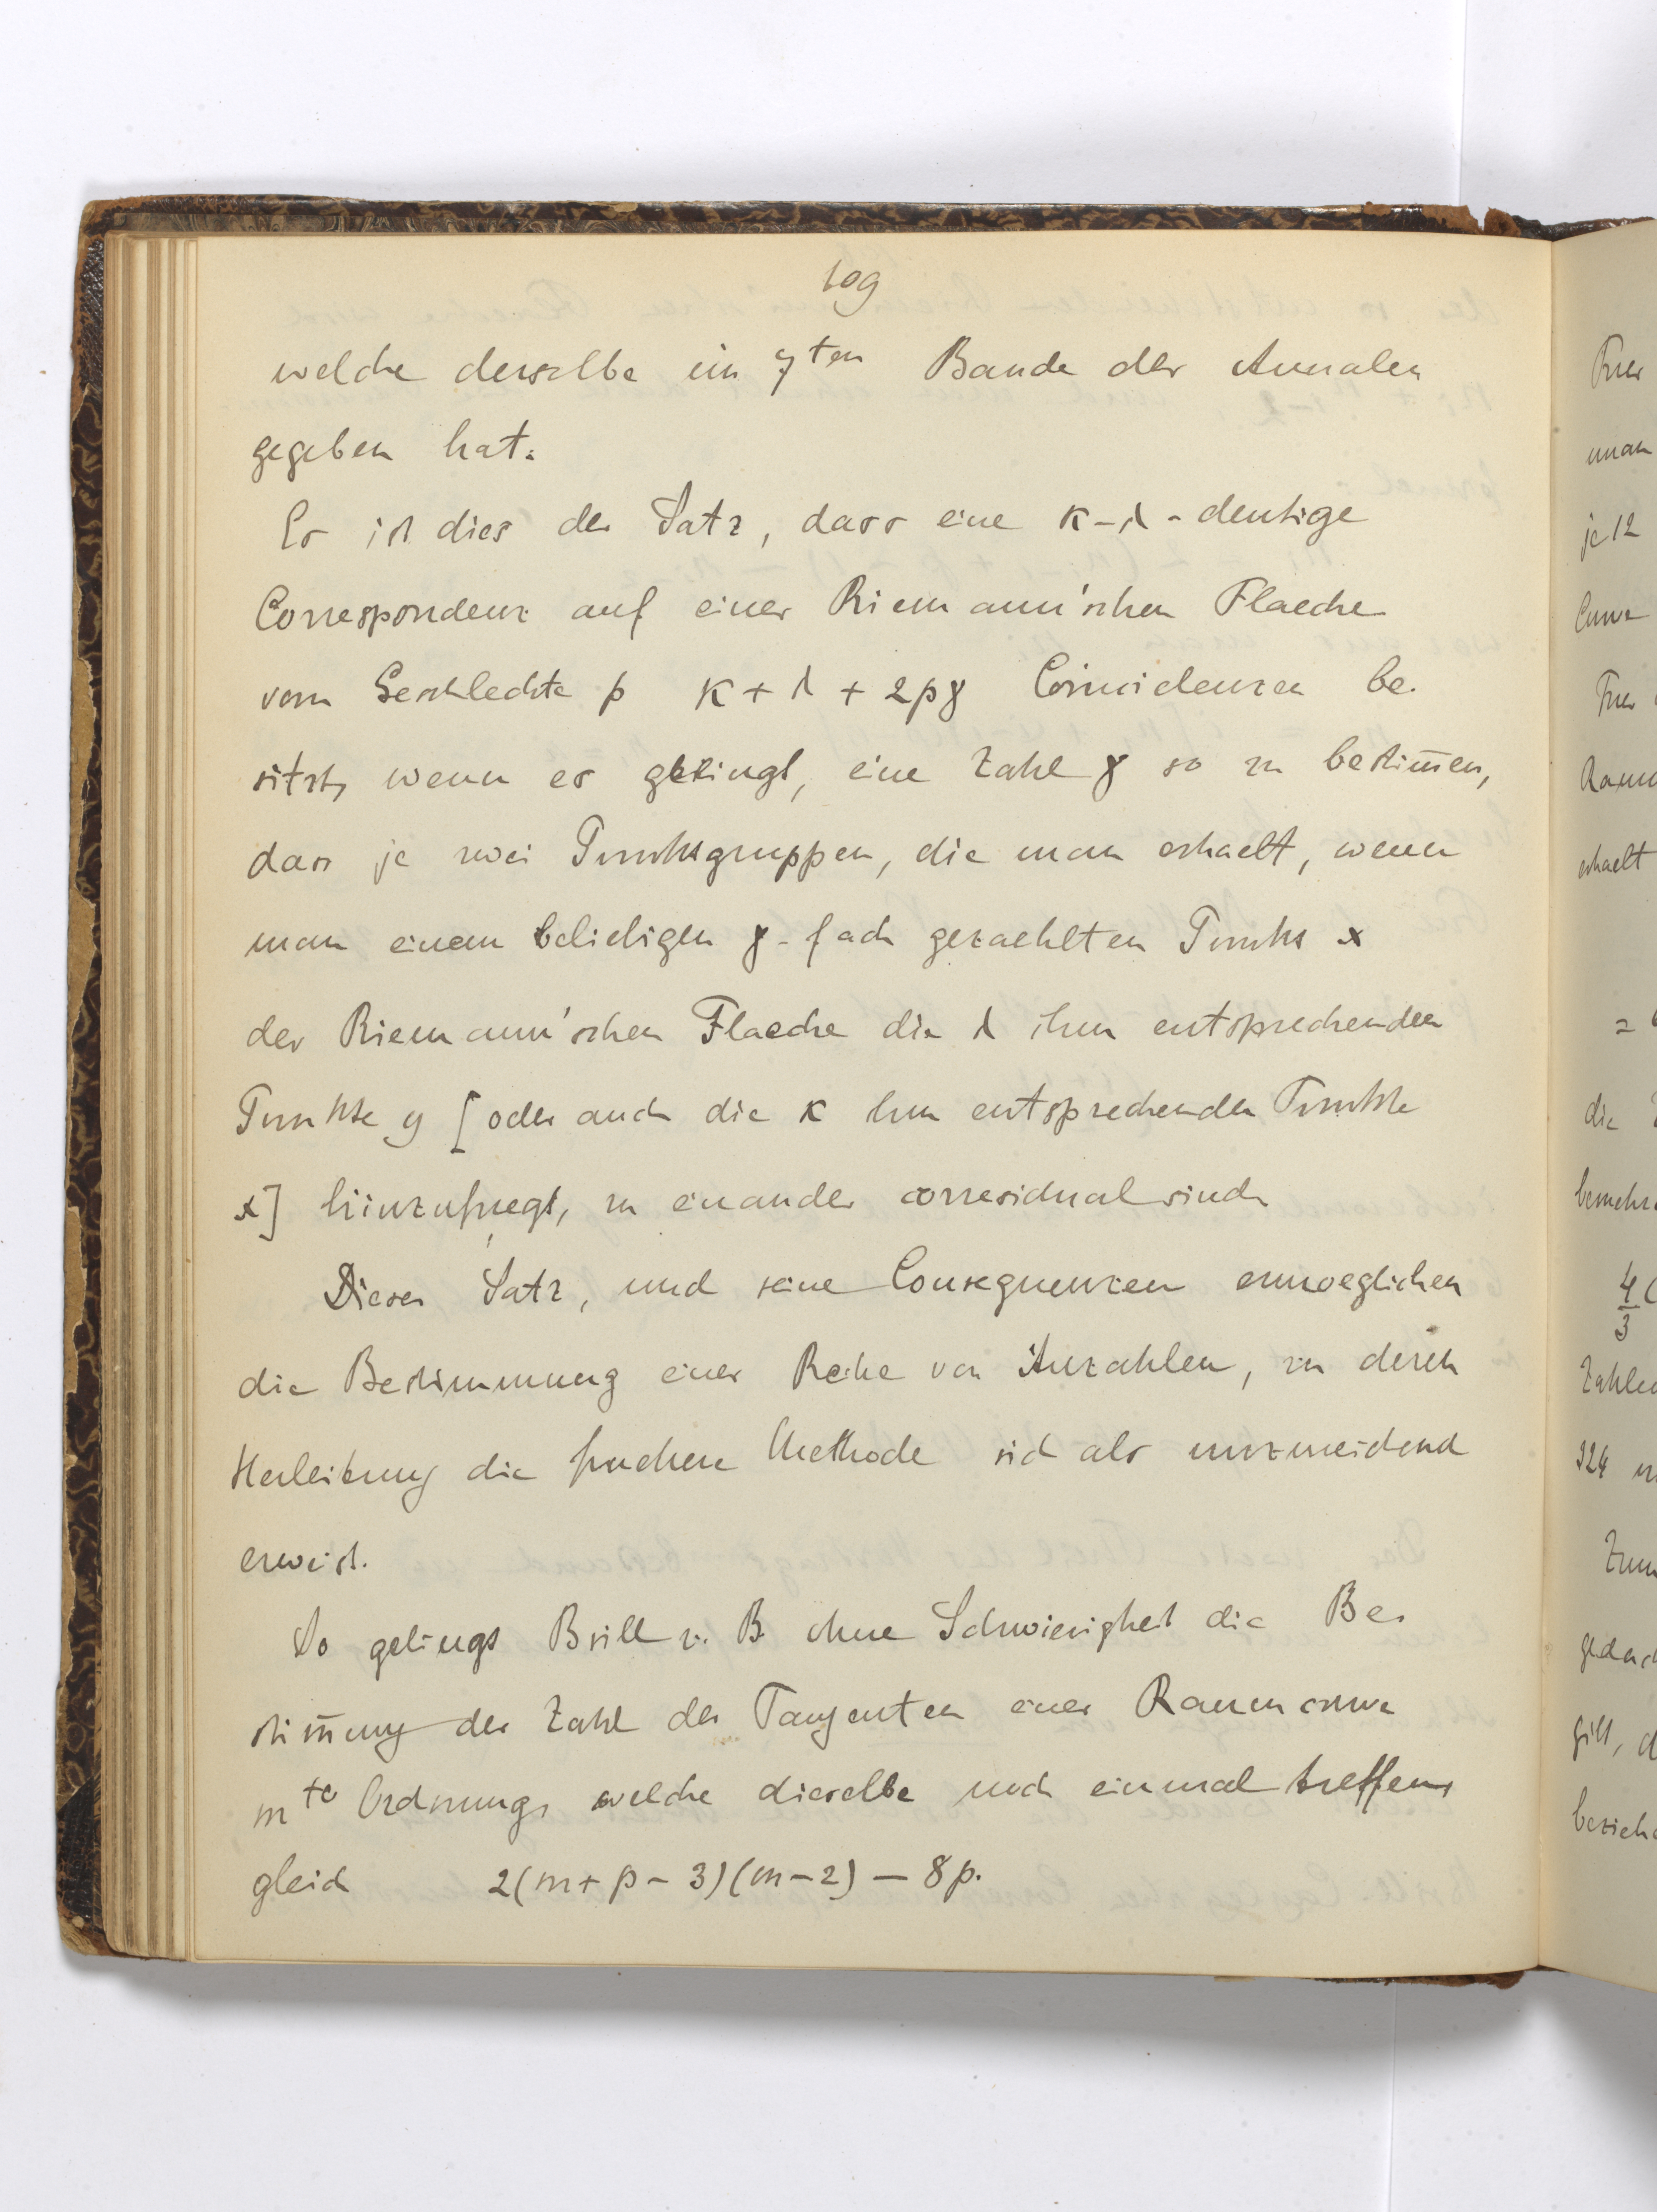 109
welche derselbe im 7ten Bande der Annalen
gegeben hat.
Es ist dies der Satz, dass eine κ-λ-deutige
Correspondenz auf einer Riemann'schen Flaeche
vom Geschlechte p κ + λ + 2pγ Coincidenzen be-
sitzt, wenn es gelingt, eine Zahl γ so zu bestim̅en,
dass je zwei Punktsgruppen, die man erhaelt, wenn
man einem beliebigen γ-fach gezaehlten Punkt x
der Riemann'schen Flaeche die λ ihm entsprechenden
Punkte y [oder auch die κ ihm entsprechenden Punkte
x] hinzufuegt, zu einander corresidual sind.
Dieser Satz, und seine Consequenzen ermoeglichen
die Bestimmung einer Reihe von Anzahlen, zu deren
Herleitung die fruehere Methode sich als unzureichend
erweist.
So gelingt Brill z. B. ohne Schwierigkeit die Be-
stim̅ung der Zahl der Tangenten einer Raumcurve
mte Ordnung, welche dieselbe noch einmal treffen,
gleich 2(m + p - 3)(m - 2) - 8p.
Fuer
man
je 12
Curve
Fuer
Raum
erhaelt
=
die
bemerk
4/3 (
Zahlen
324
Zum
gedach
gilt, d
bezieh